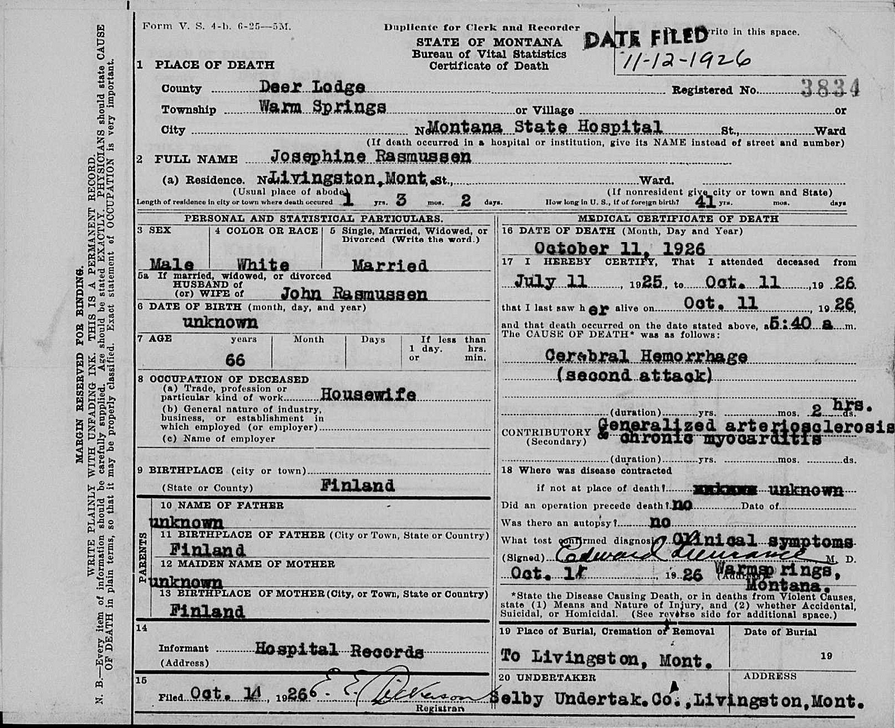 Form V. S. 4-b. 6-25—5M.
Duplicate for Clerk and Recorder
STATE OF MONTANA
Bureau of Vital Statistics
Certificate of Death
write in this space.
DATE FILED
11-12-1926
1 PLACE OF DEATH
County Deer Lodge Registered No. 3834
Township Warm Springs or Village or
City No Montana State Hospital St., Ward
(If death occurred in a hospital or institution, give its NAME instead of street and number)
2 FULL NAME Josephine Rasmussen
(a) Residence. No Livingston, Mont. St., Ward.
(Usual place of abode) (If nonresident give city or town and State)
Length of residence in city or town where death occured 1 yrs. 3 mos. 2 days. How long in U. S., if of foreign birth? 41 yrs. mos. days
PERSONAL AND STATISTICAL PARTICULARS.
3 SEX 4 COLOR OR RACE 5 Single, Married, Widowed, or
Divorced (Write the word.)
Male White Married
5a If married, widowed, or divorced
HUSBAND of
(or) WIFE of John Rasmussen
6 DATE OF BIRTH (month, day, and year)
unknown
7 AGE years Month Days If less than
1 day. hrs.
or min.
66
8 OCCUPATION OF DECEASED
(a) Trade, profession or
particular kind of work Housewife
(b) General nature of industry,
business, or establishment in
which employed (or employer)
(c) Name of employer
9 BIRTHPLACE (city or town)
(State or County) Finland
PARENTS
10 NAME OF FATHER
unknown
11 BIRTHPLACE OF FATHER (City or Town, State or Country)
Finland
12 MAIDEN NAME OF MOTHER
unknown
13 BIRTHPLACE OF MOTHER (City, or Town, State or Country)
Finland
14
Informant Hospital Records
(Address)
15
Filed Oct. 1926 E. E. Dickerson
Registrar
MEDICAL CERTIFICATE OF DEATH
16 DATE OF DEATH (Month, Day and Year)
October 11, 1926
17 I HEREBY CERTIFY, That I attended deceased from
July 11, 1925, to Oct. 11, 1926
that I last saw her alive on Oct. 11 1926
and that death occurred on the date stated above, a 5:40 a m.
The CAUSE OF DEATH* was as follows:
Cerebral Hemorrhage
(second attack)
(duration) yrs. mos. 2 hrs. ds.
CONTRIBUTORY Generalized arteriosclerosis
(Secondary) & chronic myocarditis
(duration) yrs. mos. ds.
18 Where was disease contracted
if not at place of death? unknown
Did an operation precede death? no Date of
Was there an autopsy? no
What test confirmed diagnosis? Clinical symptoms
(Signed) Edward M. D.
Oct. 1926 (Address) Warmsprings,
Montana.
*State the Disease Causing Death, or in deaths from Violent Causes,
state (1) Means and Nature of Injury, and (2) whether Accidental,
Suicidal, or Homicidal. (See reverse side for additional space.)
19 Place of Burial, Cremation or Removal Date of Burial
To Livingston, Mont. 19
20 UNDERTAKER ADDRESS
Selby Undertak. Co., Livingston, Mont.
MARGIN RESERVED FOR BINDING.
WRITE PLAINLY WITH UNFADING INK. THIS IS A PERMANENT RECORD.
N. B.—Every item of information should be carefully supplied. Age should be stated EXACTLY. PHYSICIANS should state CAUSE
OF DEATH in plain terms, so that it may be properly classified. Exact statement of OCCUPATION is very important.